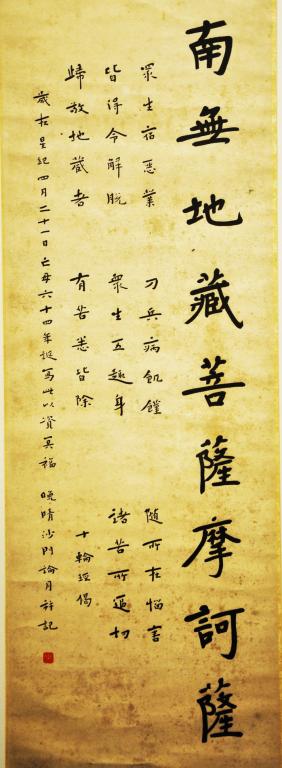 南無地藏菩薩摩訶薩
眾生宿惡業 刀兵病飢饉 隨所在惱害
皆得令解脫 眾生五趣身 諸苦所逼切
歸敬地藏者 有苦悉皆除 十輪經偈
歲在星紀四月二十一日亡母六十四年誕寫此以資冥福 晚晴沙門論月并記